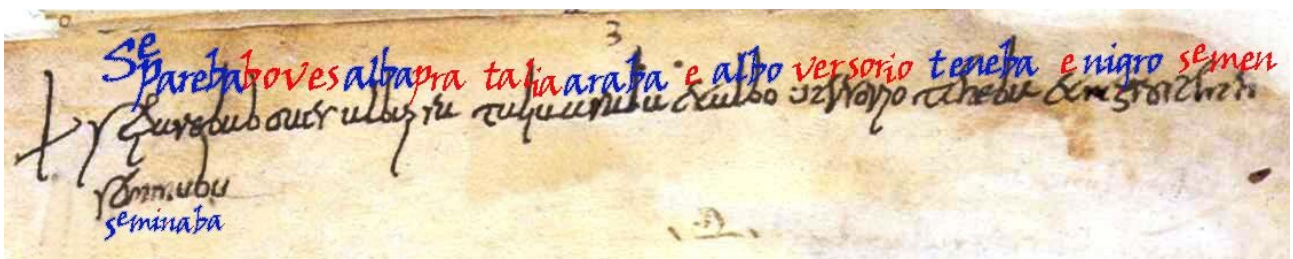 3
Se pareba boves alba pratalia araba e albo versorio teneba e nigro semen
seminaba